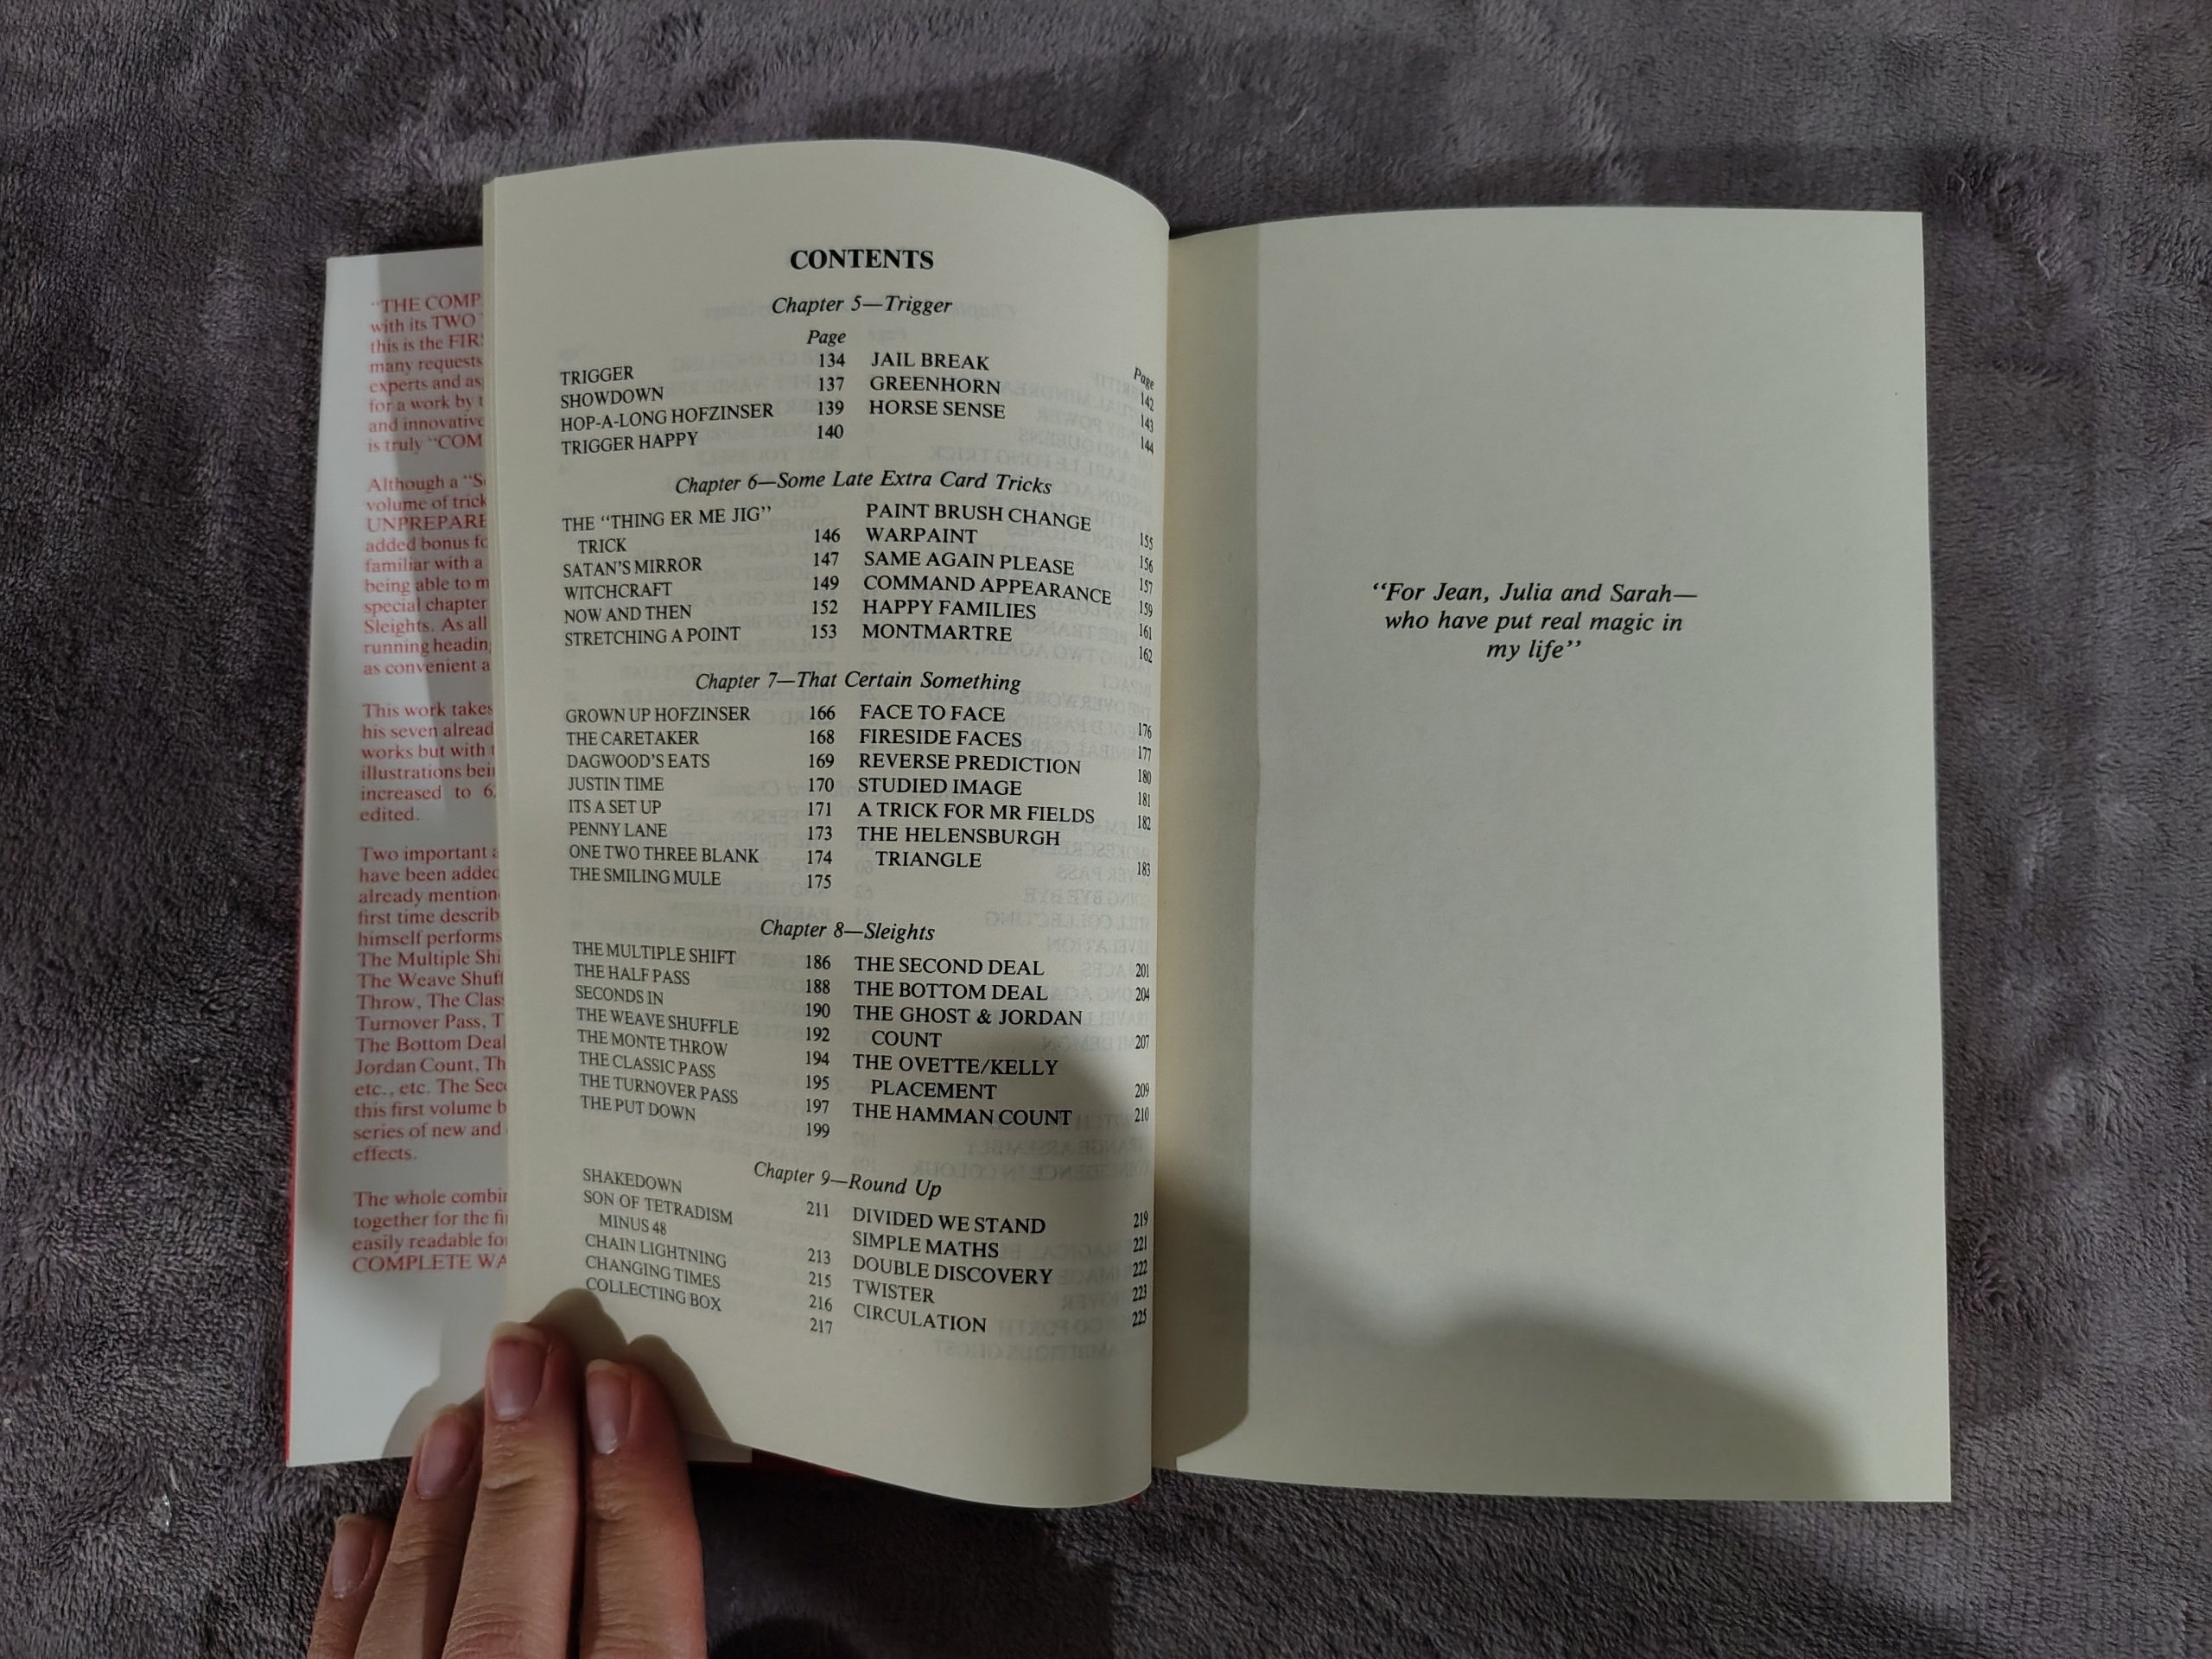 "THE COMP
with its TWO
this is the FIR
many requests
experts and as
for a work by t
and innovative
is truly "COM
Although a "S
volume of trick
UNPREPARE
added bonus fo
familiar with a
being able to m
special chapter
Sleights. As all
running heading
as convenient a
This work takes
his seven alread
works but with
illustrations bein
increased to 6
edited.
Two important a
have been added
already mention
first time describ
himself performs
The Multiple Shi
The Weave Shuff
Throw, The Clas
Turnover Pass, T
The Bottom Deal
Jordan Count, Th
etc., etc. The Sec
this first volume b
series of new and
effects.
The whole combin
together for the fi
easily readable fo
COMPLETE WA
CONTENTS
Chapter 5—Trigger
Page Page
TRIGGER 134 JAIL BREAK 142
SHOWDOWN 137 GREENHORN 143
HOP-A-LONG HOFZINSER 139 HORSE SENSE 144
TRIGGER HAPPY 140
Chapter 6—Some Late Extra Card Tricks
THE "THING ER ME JIG" PAINT BRUSH CHANGE 155
TRICK 146 WARPAINT 156
SATAN'S MIRROR 147 SAME AGAIN PLEASE 157
WITCHCRAFT 149 COMMAND APPEARANCE 159
NOW AND THEN 152 HAPPY FAMILIES 161
STRETCHING A POINT 153 MONTMARTRE 162
Chapter 7—That Certain Something
GROWN UP HOFZINSER 166 FACE TO FACE 176
THE CARETAKER 168 FIRESIDE FACES 177
DAGWOOD'S EATS 169 REVERSE PREDICTION 180
JUSTIN TIME 170 STUDIED IMAGE 181
ITS A SET UP 171 A TRICK FOR MR FIELDS 182
PENNY LANE 173 THE HELENSBURGH
ONE TWO THREE BLANK 174 TRIANGLE 183
THE SMILING MULE 175
Chapter 8—Sleights
THE MULTIPLE SHIFT 186 THE SECOND DEAL 201
THE HALF PASS 188 THE BOTTOM DEAL 204
SECONDS IN 190 THE GHOST & JORDAN
THE WEAVE SHUFFLE 192 COUNT 207
THE MONTE THROW 194 THE OVETTE/KELLY
THE CLASSIC PASS 195 PLACEMENT 209
THE TURNOVER PASS 197 THE HAMMAN COUNT 210
THE PUT DOWN 199
Chapter 9—Round Up
SHAKEDOWN 211 DIVIDED WE STAND 219
SON OF TETRADISM SIMPLE MATHS 221
MINUS 48 213 DOUBLE DISCOVERY 222
CHAIN LIGHTNING 215 TWISTER 223
CHANGING TIMES 216 CIRCULATION 225
COLLECTING BOX 217
"For Jean, Julia and Sarah—
who have put real magic in
my life"